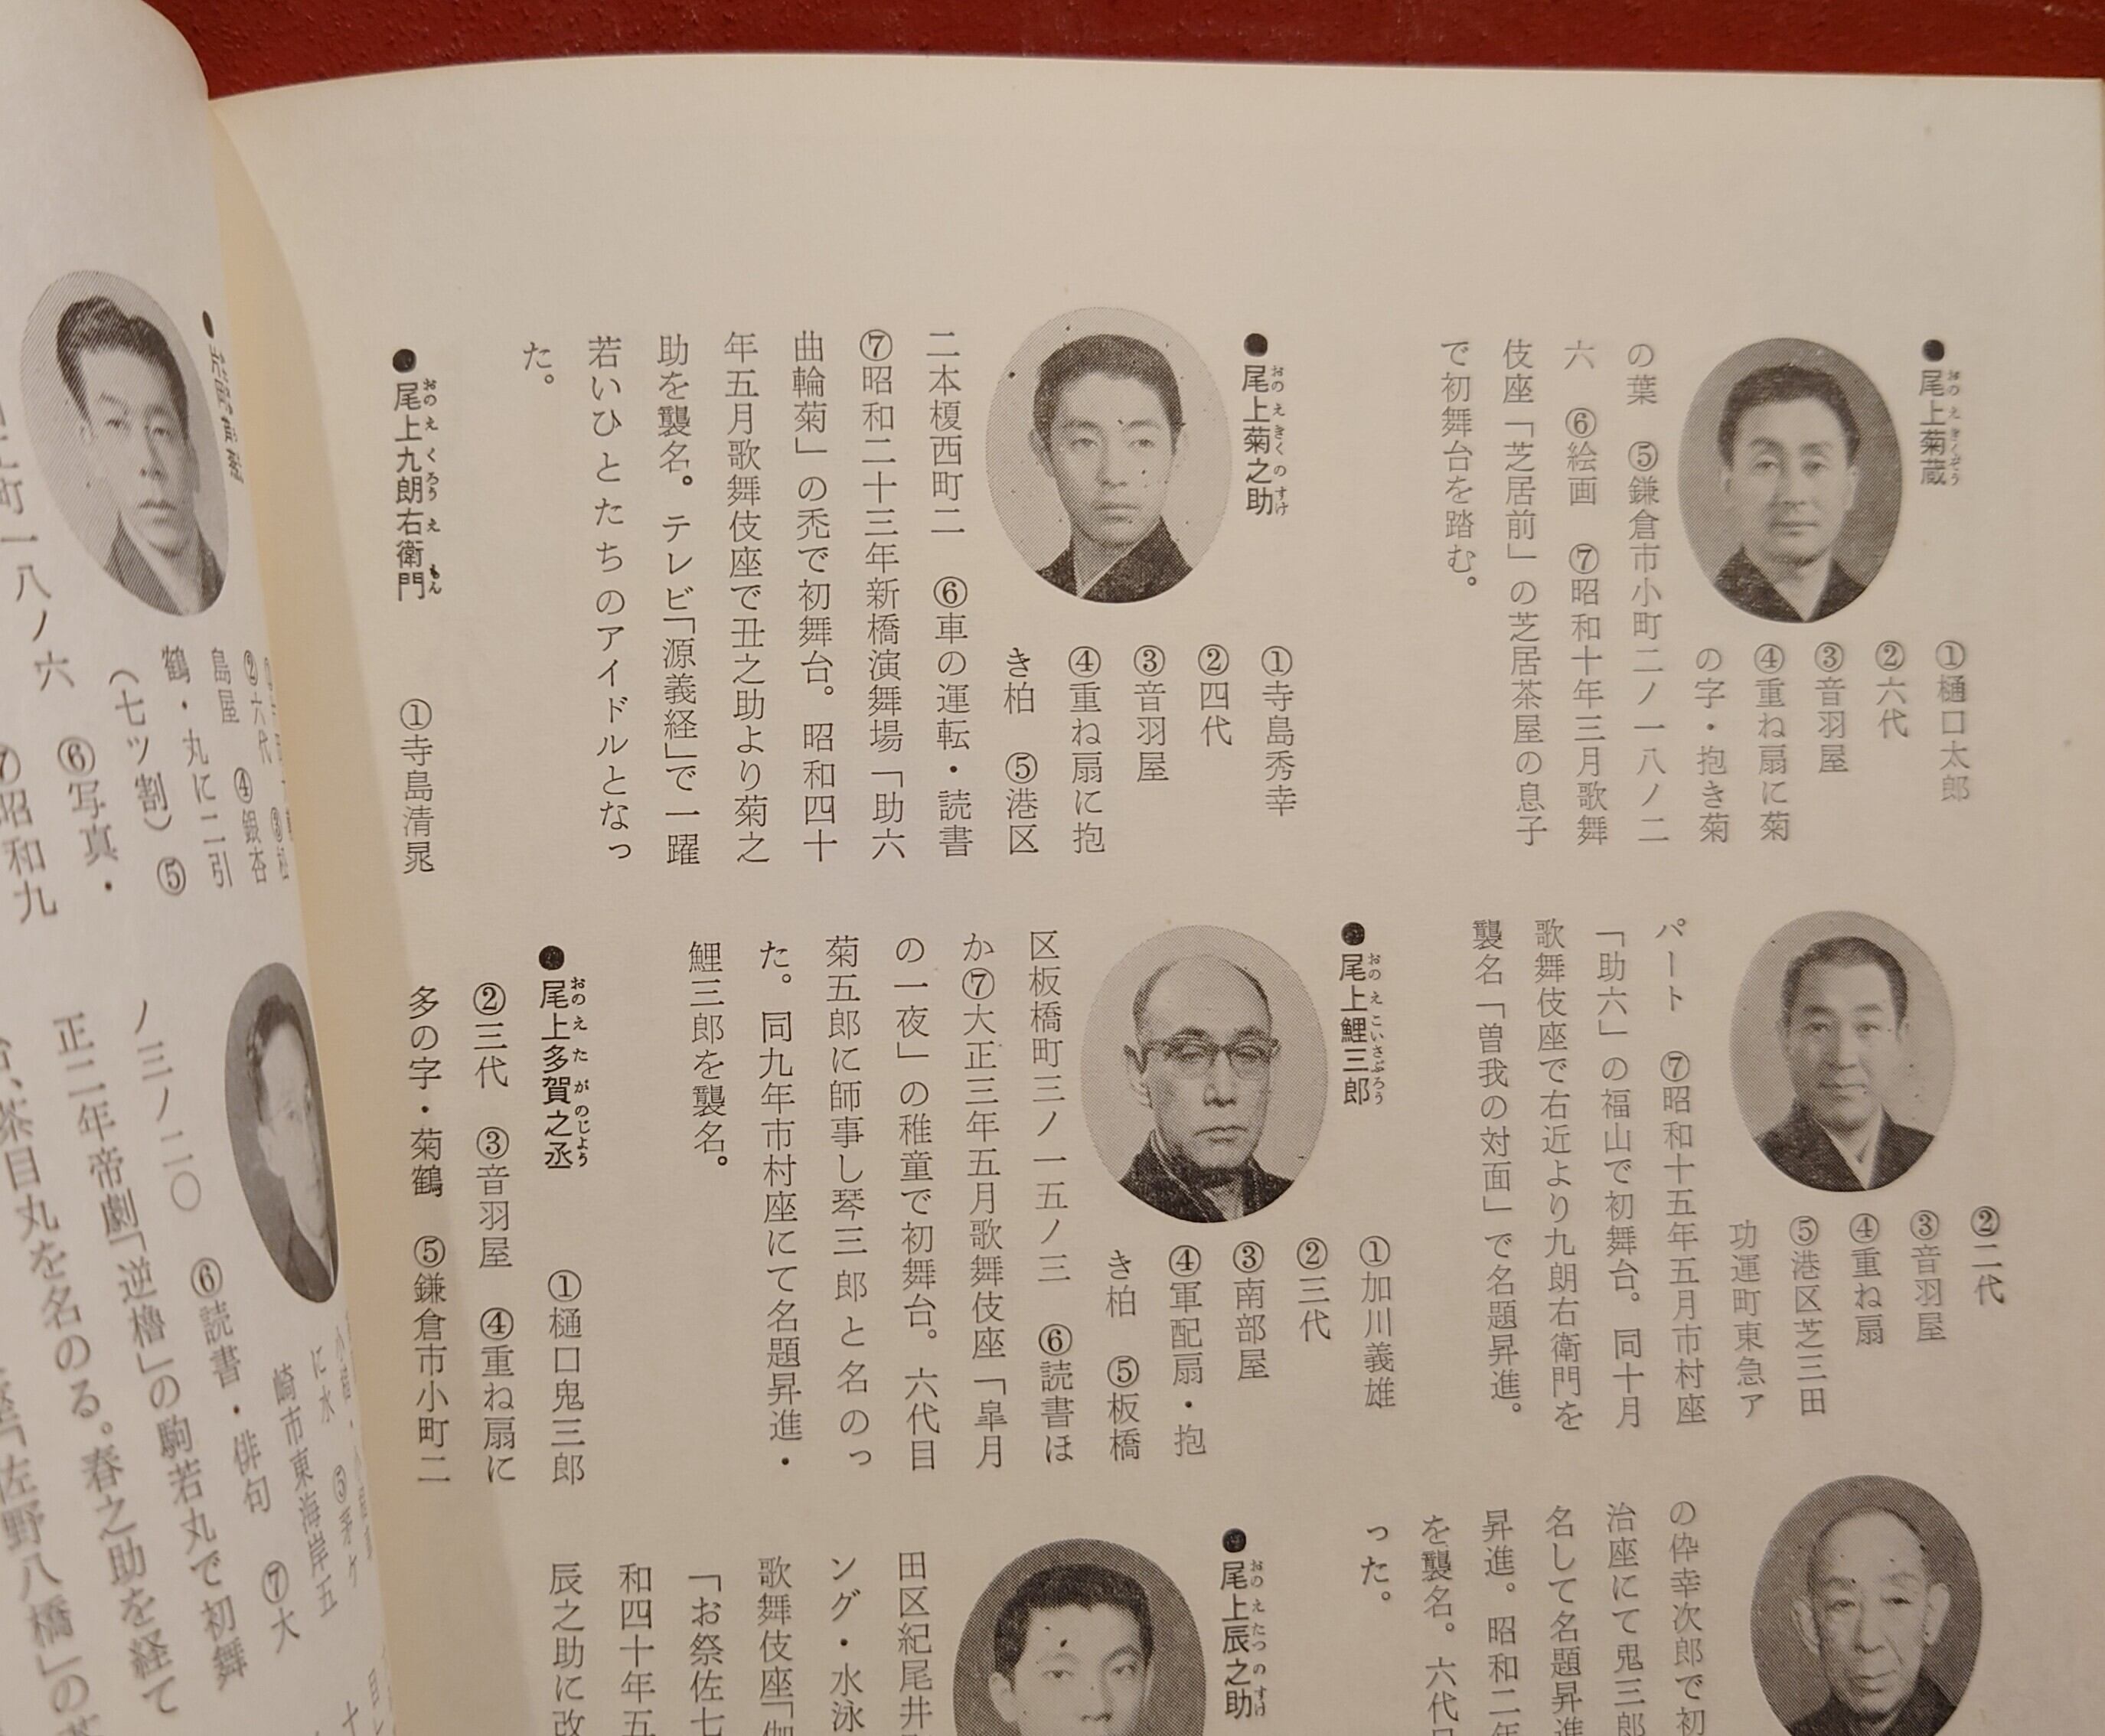 ●尾上菊蔵
おのえきくぞう
①樋口太郎
②六代
③音羽屋
④重ね扇に菊
の字・抱き菊
の葉 ⑤鎌倉市小町二ノ一八ノ二
六 ⑥絵画 ⑦昭和十年三月歌舞
伎座「芝居前」の芝居茶屋の息子
で初舞台を踏む。
●尾上菊之助
おのえきくのすけ
①寺島秀幸
②四代
③音羽屋
④重ね扇に抱
き柏 ⑤港区
二本榎西町二 ⑥車の運転・読書
⑦昭和二十三年新橋演舞場「助六
曲輪菊」の禿で初舞台。昭和四十
年五月歌舞伎座で丑之助より菊之
助を襲名。テレビ「源義経」で一躍
若いひとたちのアイドルとなっ
た。
●尾上九朗右衛門
おのえくろうえもん
①寺島清晁
②二代
③音羽屋
④重ね扇
⑤港区芝三田
功運町東急ア
パート ⑦昭和十五年五月市村座
「助六」の福山で初舞台。同十月
歌舞伎座で右近より九朗右衛門を
襲名「曽我の対面」で名題昇進。
●尾上鯉三郎
おのえこいさぶろう
①加川義雄
②三代
③南部屋
④軍配扇・抱
き柏 ⑤板橋
区板橋町三ノ一五ノ三 ⑥読書ほ
か⑦大正三年五月歌舞伎座「皐月
の一夜」の稚童で初舞台。六代目
菊五郎に師事し琴三郎と名のっ
た。同九年市村座にて名題昇進・
鯉三郎を襲名。
●尾上多賀之丞
おのえたがのじよう
①樋口鬼三郎
②三代 ③音羽屋 ④重ね扇に
多の字・菊鶴 ⑤鎌倉市小町二
の伜幸次郎で初
治座にて鬼三郎
名して名題昇進
昇進。昭和二年
を襲名。六代目
った。
●尾上辰之助
おのえたつのすけ
田区紀尾井
ング・水泳
歌舞伎座「伽
「お祭佐七
和四十年五
辰之助に改
②六代
島屋 ④銀杏
鶴・丸に二引
（七ツ割） ⑤
町一八ノ六 ⑥写真・
⑦昭和九
に水 ⑤茅ケ
崎市東海岸五
ノ三ノ二〇 ⑥読書・俳句 ⑦大
正二年帝劇「逆櫓」の駒若丸で初舞
台、茶目丸を名のる。春之助を経て
「佐野八橋」の